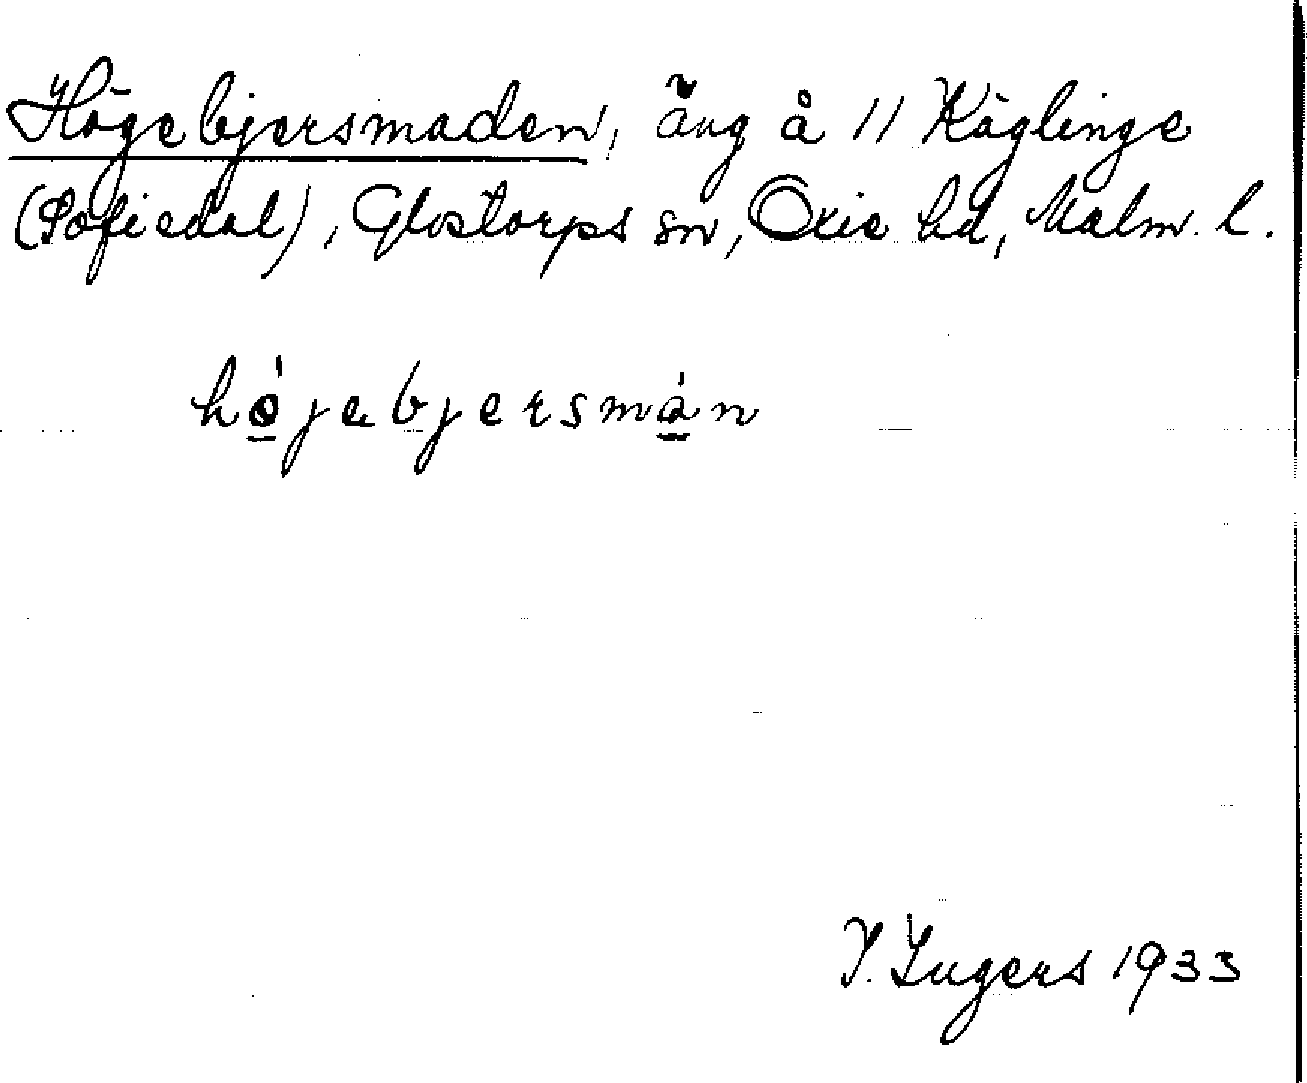 Högebjersmaden, äng å 11 Käglinge
(Sofiedal), Glostorps sn, Oxie hd, Malm. l.
hǿ̲jebjersmá̲n
I. Ingers 1933